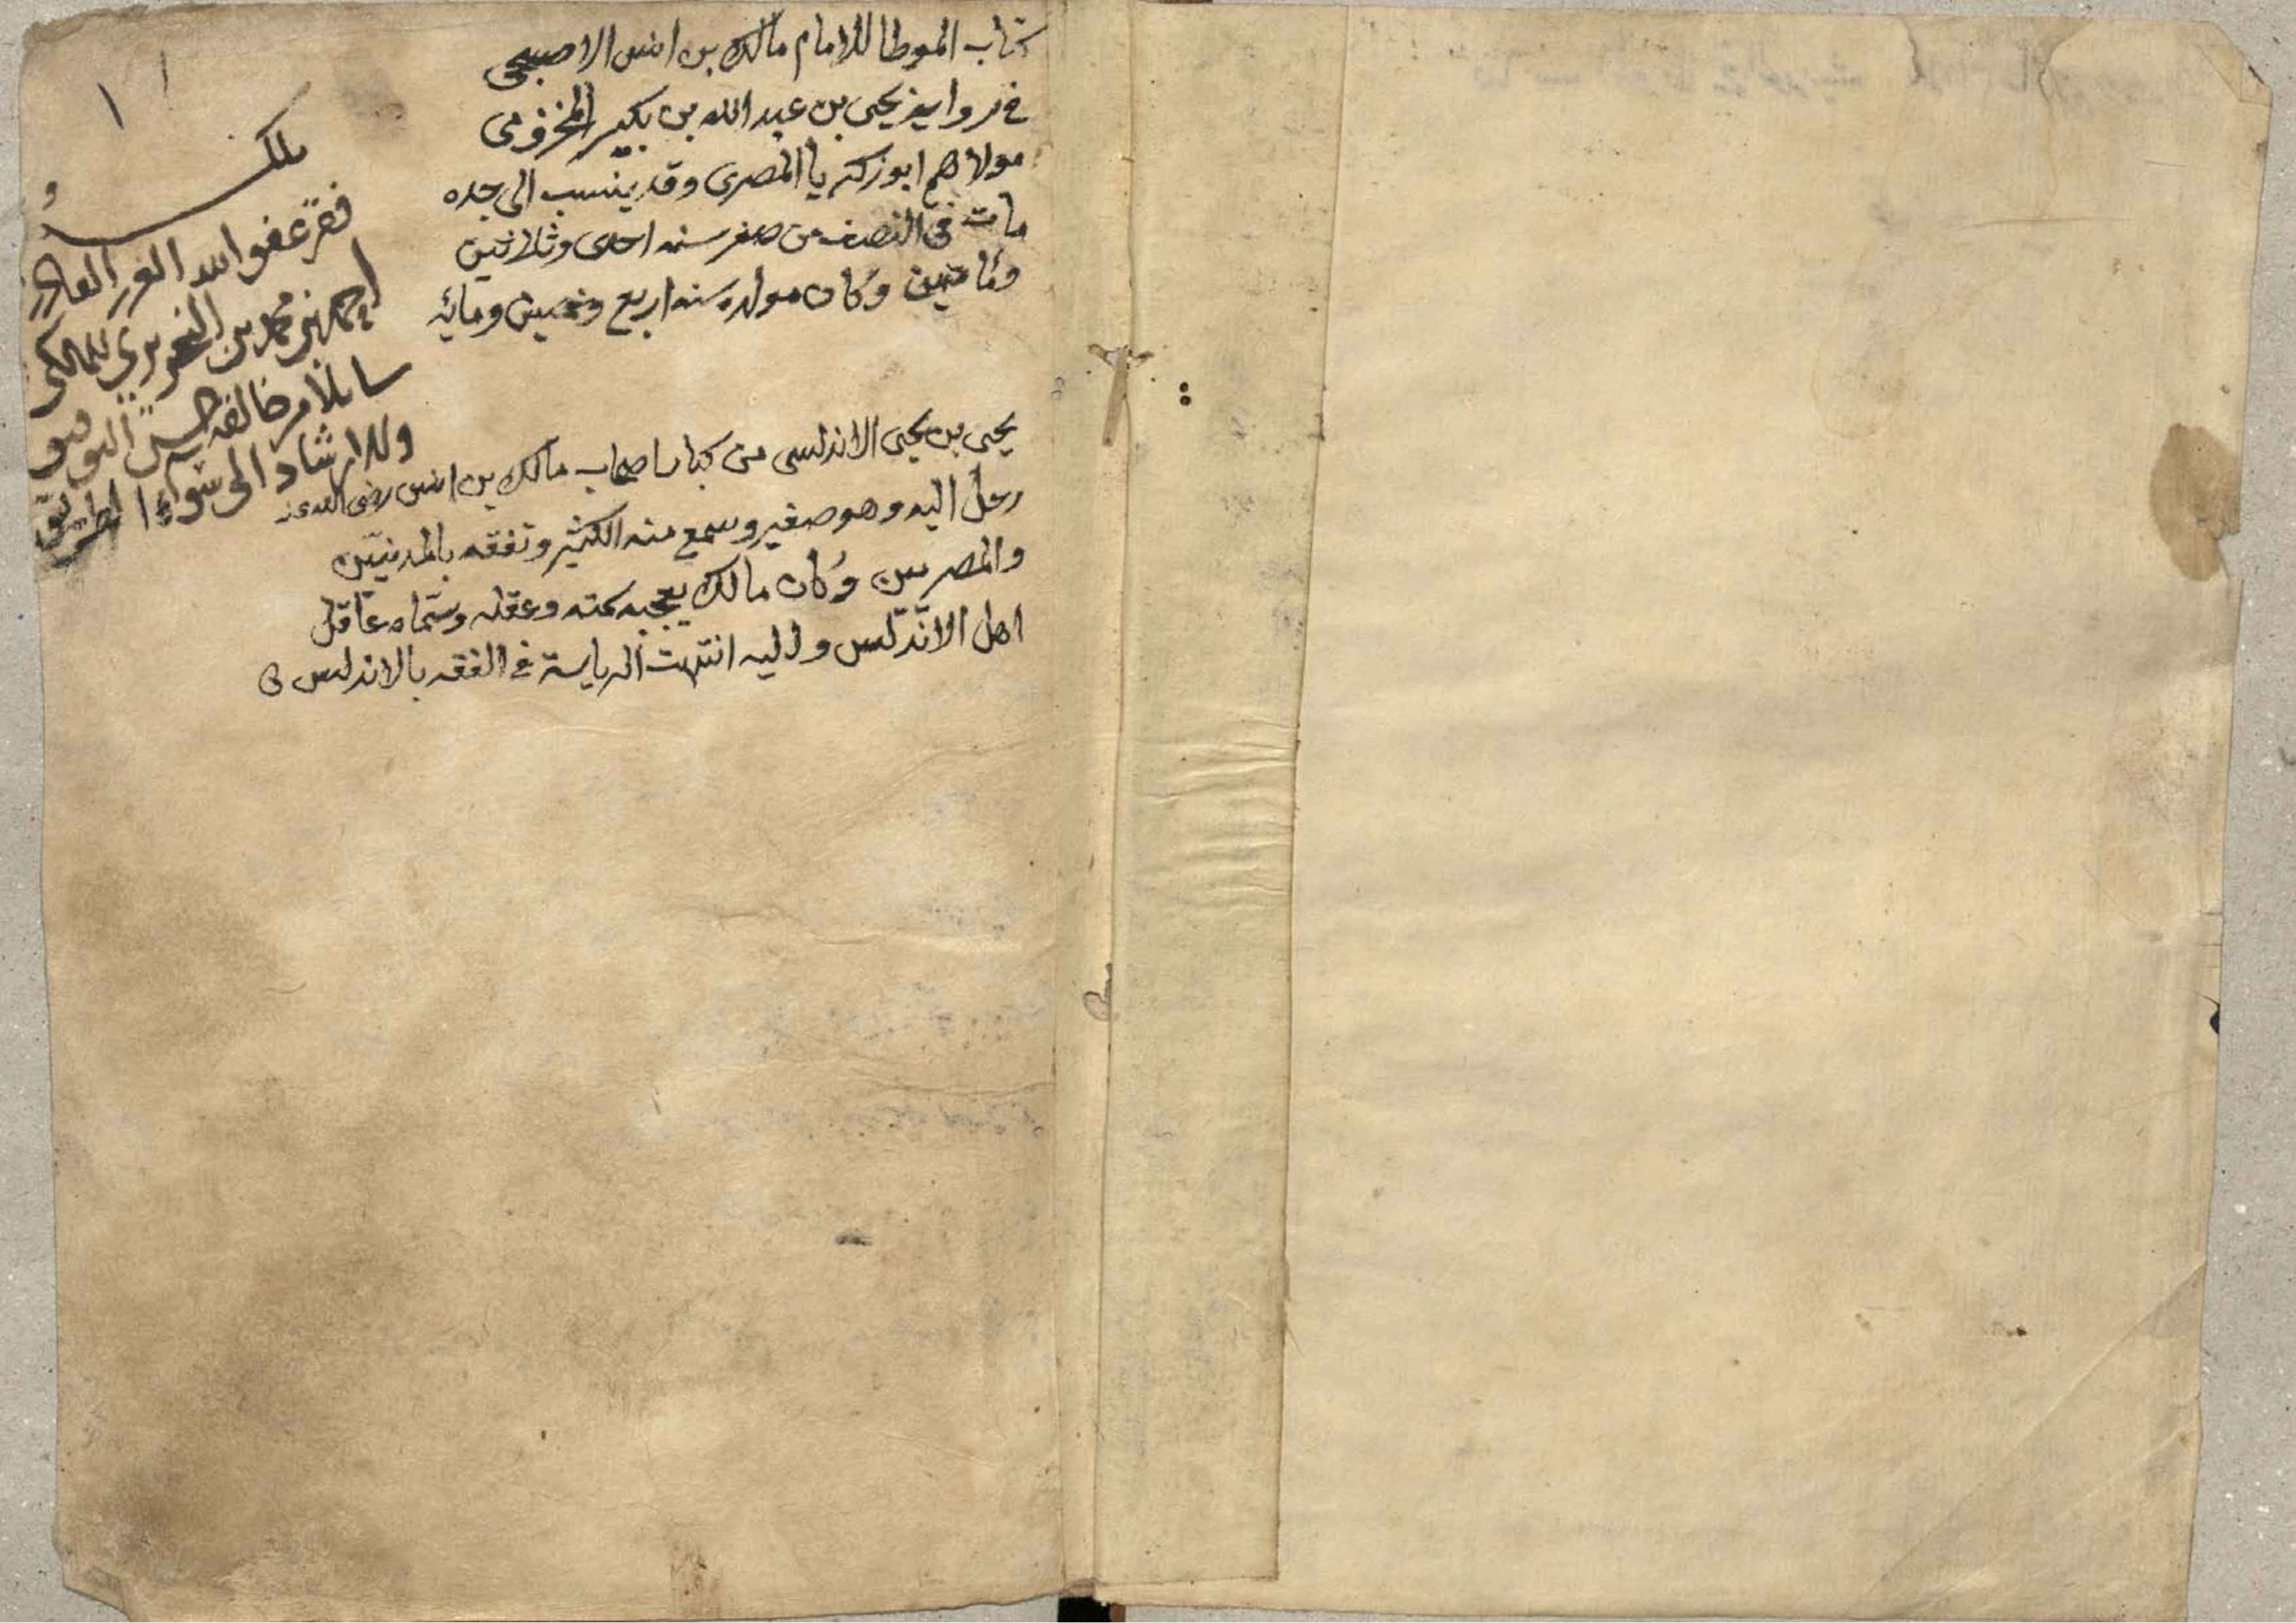 كتاب الموطا للامام مالك بن انس الاصبحي
في رواية يحيى بن عبد الله بن بكير المخزومي
مولاهم ابو زكريا المصري وقد ينسب الى جده
مات في النصف من صفر سنه احدى وثلاثين
ومائتين وكان مولده سنه اربع وخمسين ومايه
يحيى بن يحيى الاندلسي من كبار اصحاب مالك بن انس رضى الله عنه
رحل اليه وهو صغير وسمع منه الكثير وتفقه بالمدنيين
والمصريين وكان مالك يعجبه سمته وعقله وسماه عاقل
اهل الاندلس واليه انتهت الرياسة في الفقه بالاندلس
١
١
ملك
فقير عفو الله القادر
احمد بن محمد بن النحريري المالكي
سايلا من خالقه حسن التوفيق
والارشاد الى سواء الطريق